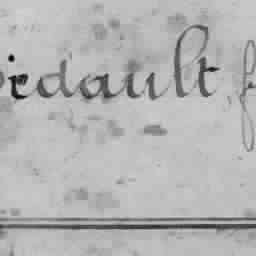 idault, f